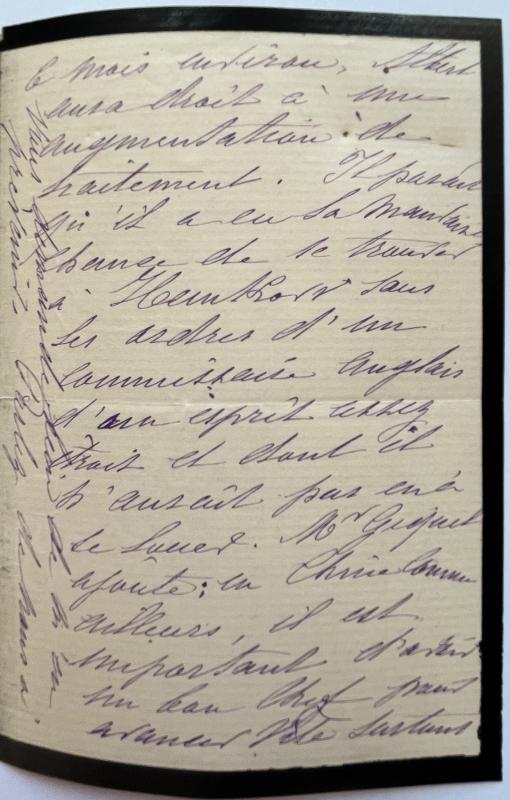 6 mois environ, Albert
aura droit à une
augmentation de
traitement. Il paraît
qu'il a eu la mauvaise
chance de se trouver
à Hankow sous
les ordres d'un
commissaire anglais
d'un esprit assez
étroit et dont il
n'aurait pas eu à
se louer. Mr Giquel
ajoute: en Chine comme
ailleurs, il est
important d'avoir
un bon chef pour
avancer vite surtout
vous
Parlez de nous à